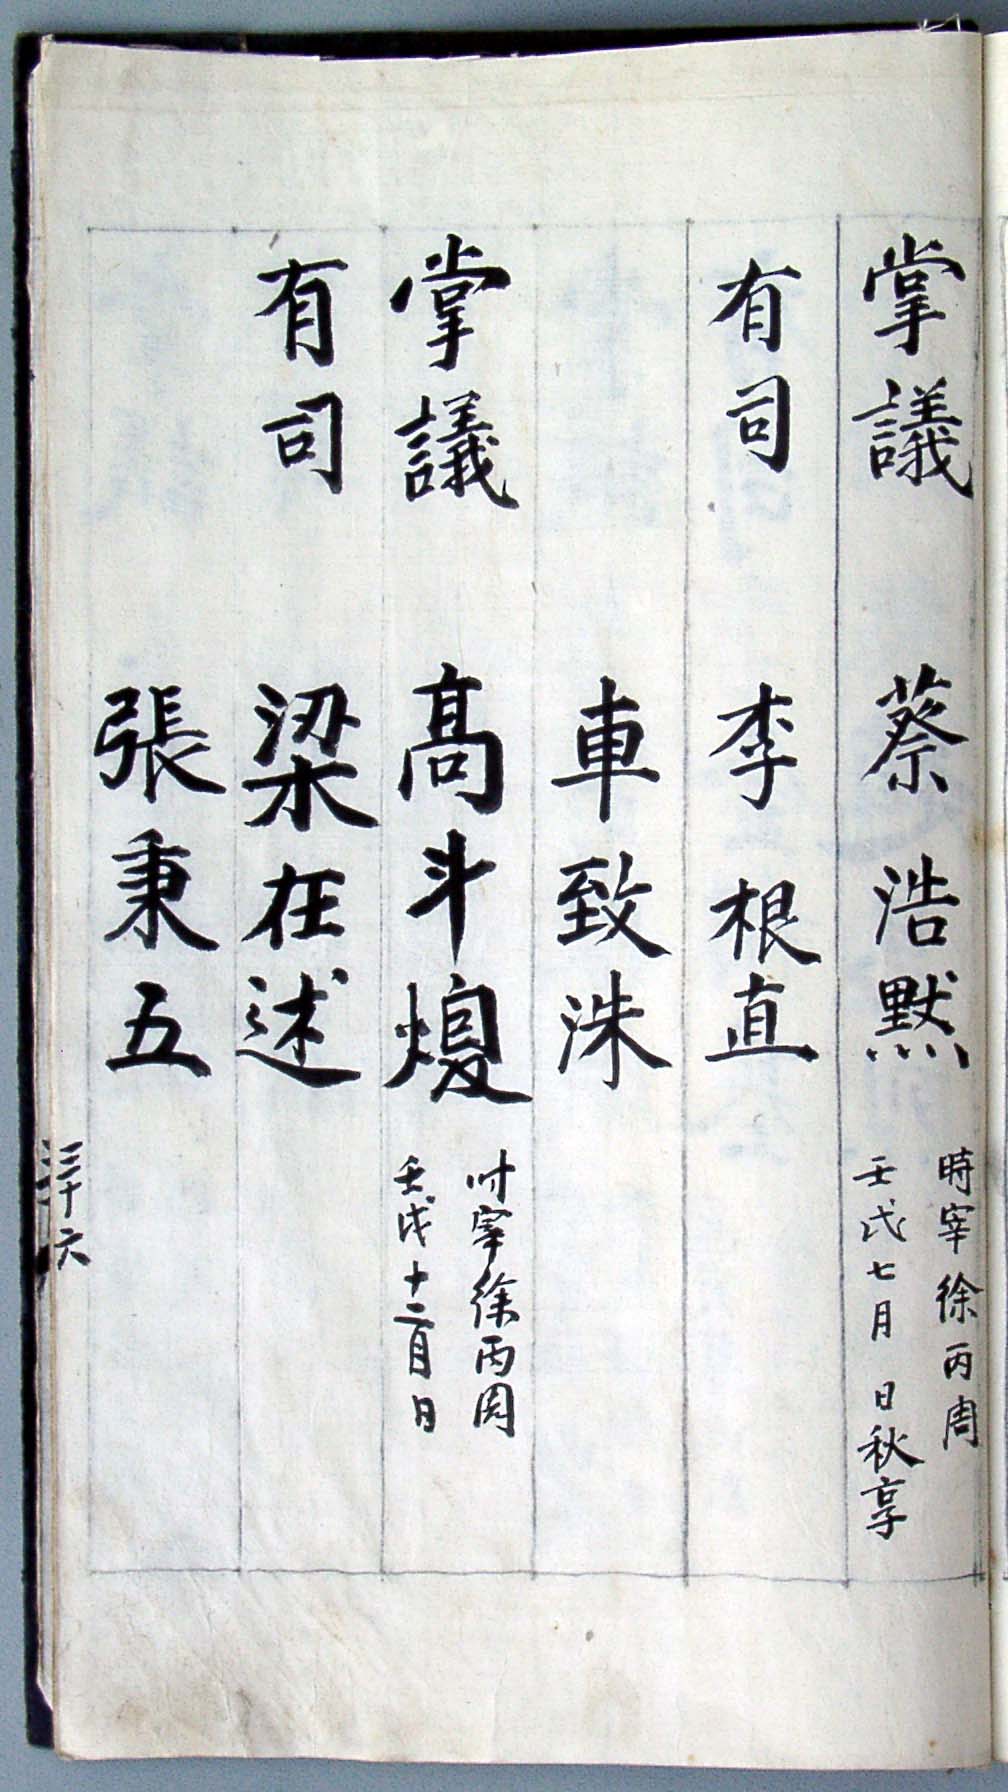 掌議 蔡浩默 時宰徐丙周
壬戌七月 日秋享
有司 李根直
車致洙
掌議 高斗煥 时宰徐丙周
壬戌十二月 日
有司 梁在述
張秉五
三十六